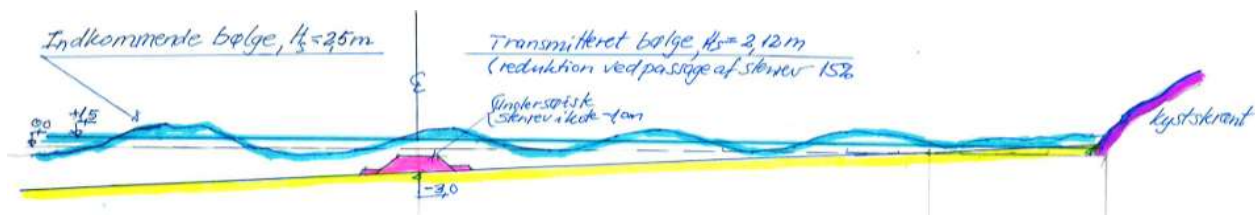 Indkommende bølge, Hs=2,5m
Transmitteret bølge, Hs=2,12m
(reduktion ved passage af stenrev 15%
Undersøisk
stenrev i kote -1,0m
+1,5
0,0
kystskrænt
-3,0